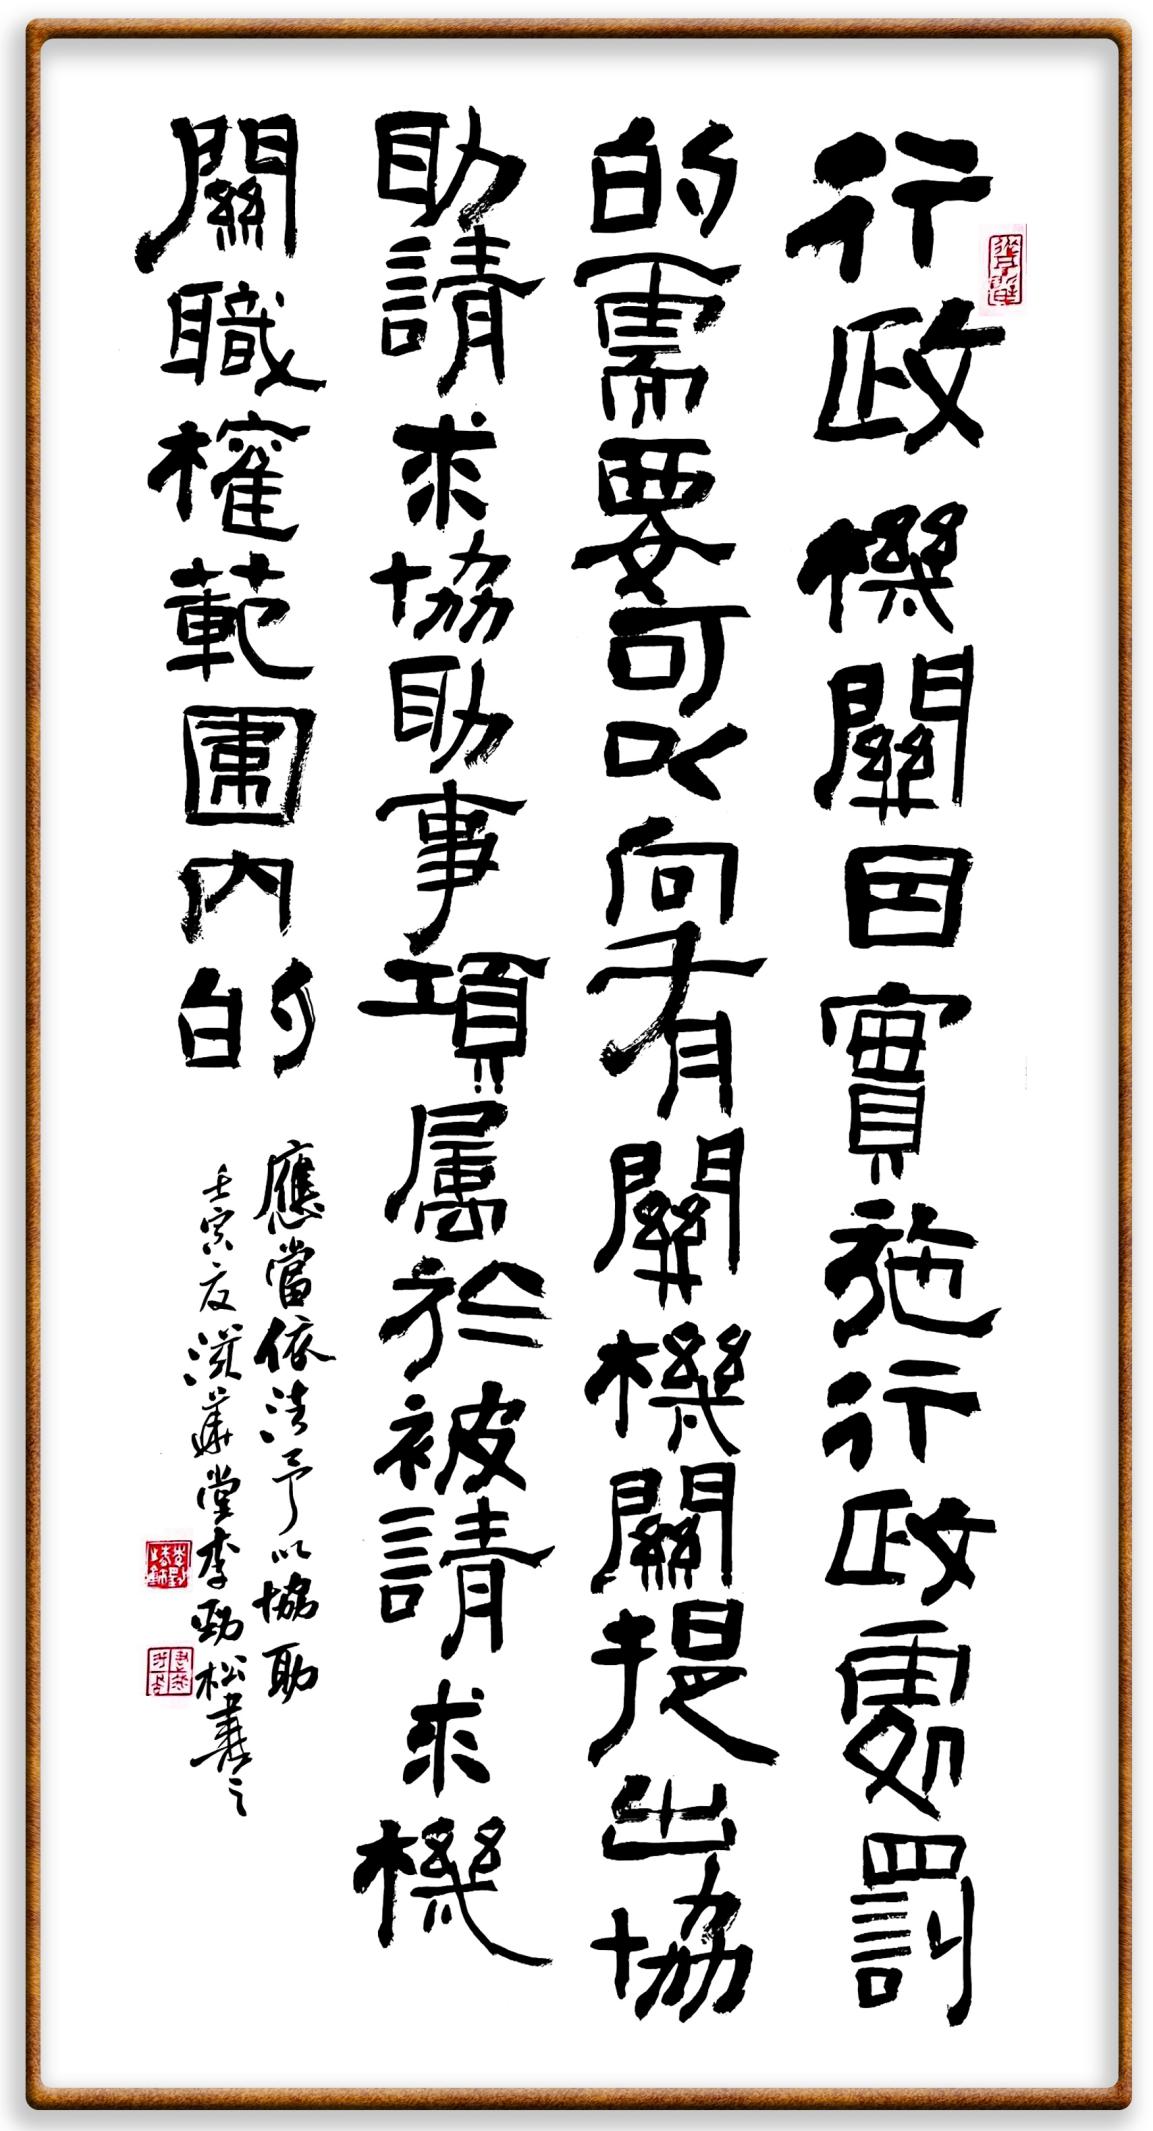 行政機關因實施行政處罰
的需要可以向有關機關提出協
助請求協助事項屬於被請求機
關職權範圍内的
應當依法予以協助
壬寅夏漢華堂李勁松書之